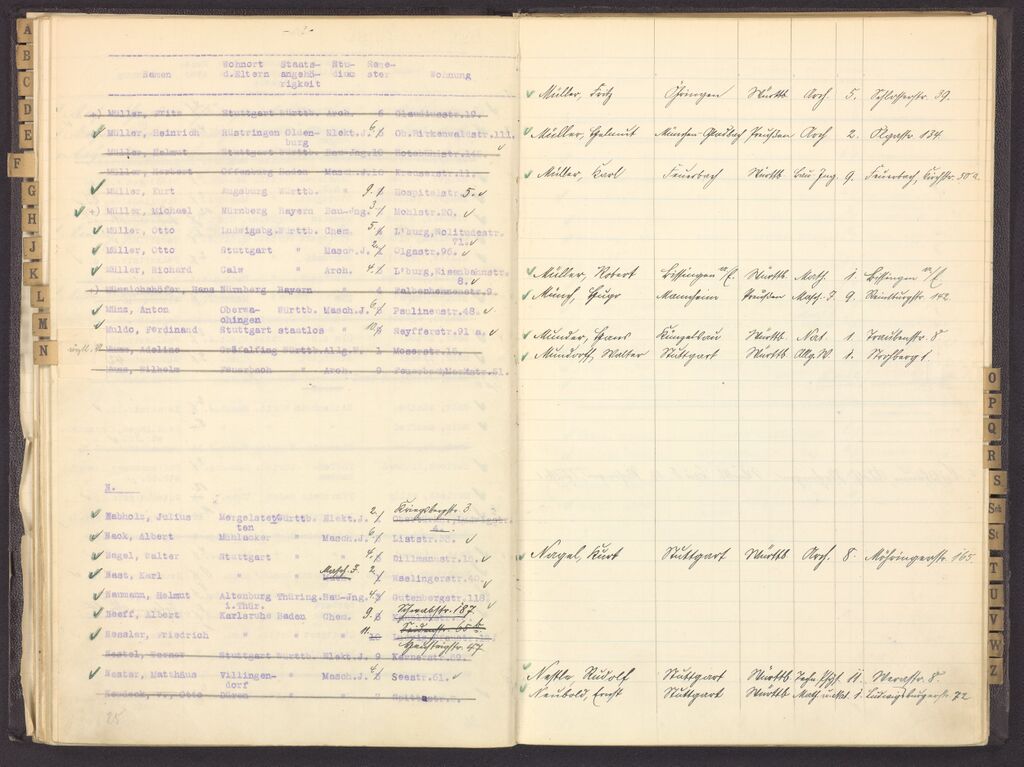 Namen Wohnort d.Eltern Staatsangehörigkeit Studium Semester Wohnung
+) Müller, Fritz Stuttgart Württb. Arch. 6 Claudiusstr.19.
Müller, Heinrich Rüstringen Oldenburg Elekt.J. 6. Ob.Birkenwaldstr.111.
Müller, Helmut Stuttgart Württb. Bau-Jng.10 Rotebühlstr.145.
Müller, Herbert Offenburg Baden Masch.J.10 Kreuserstr.11.
Müller, Kurt Augsburg Württb. " 9. Hospitalstr.5.
+) Müller, Michael Nürnberg Bayern Bau-Jng. 3. Mohlstr.20.
Müller, Otto Ludwigsbg.Württb. Chem. 5. L'burg,Solitudestr. 71.
Müller, Otto Stuttgart " Masch.J. 2. Olgastr.96.
Müller, Richard Calw " Arch. 4. L'burg,Eisenbahnstr. 8.
+) Münnichshöfer, Hans Nürnberg Bayern " 4 Falbenhennenstr.9.
Münz, Anton Oberwachingen Württb. Masch.J. 6. Paulinenstr.48.
Muldo, Ferdinand Stuttgart staatlos " 10. Reyfferstr.91 a.
Mumm, Adeline Gräfelfing Württb. Allg.W. 1 Moserstr.16.
Muns, Wilhelm Feuerbach " Arch. 9 Feuerbach,Marktstr.51.
N.
Nabholz, Julius Mergelstetten Württb. Elekt.J. 2. Kriegsbergstr. 3
Nack, Albert Mühlacker " Masch.J. 6. Liststr.38.
Nagel, Walter Stuttgart " " 4. Dillmannstr.10.
Nast, Karl " " Masch.J. 2. Esslingerstr.40.
Naumann, Helmut Altenburg i.Thür. Thüring. Bau-Jng. 4. Gutenbergstr.118.
Neeff, Albert Karlsruhe Baden Chem. 9. Schwabstr. 187.
Nessler, Friedrich " " " 11.
Nestel, Werner Stuttgart Württb. Elekt.J. 9 Kernerstr.59.
Nestar, Matthäus Villingendorf " Masch.J. 4. Seestr.61.
Neudeck, v., Otto Düren " " 7
25
Müller, Fritz Öhringen Württb. Arch. 5. Schlosserstr. 39.
Müller, Helmut München-Gladbach Preußen Arch 2. Olgastr. 134.
Müller, Karl Feuerbach Württb. Bau Jng. 9. Feuerbach, Kirchstr. 30a.
Müller, Robert Bissingen a/E. Württb. Math 1. Bissingen a/E
Münch, Hugo Mannheim Preußen Masch.J. 9. Reinsburgstr. 142
Munder, Hans Küngelsau Württb. Nat. 1. Traubenstr. 8
Mundorff, Walter Stuttgart Württb. Allg.W. 1. Strohberg 1.
Nagel, Kurt Stuttgart Württb. Arch. 8. Möhringerstr. 165.
Nestle Rudolf Stuttgart Württb. Tech. Phys. 11. Werastr. 8.
Neubold, Ernst Stuttgart Württb. Math u. Nat. 1. Ludwigsburgerstr. 72
A
B
C
D
E
F
G
H
J
K
L
M
N
O
P
Q
R
S
Sch
St
T
U
V
W
Z